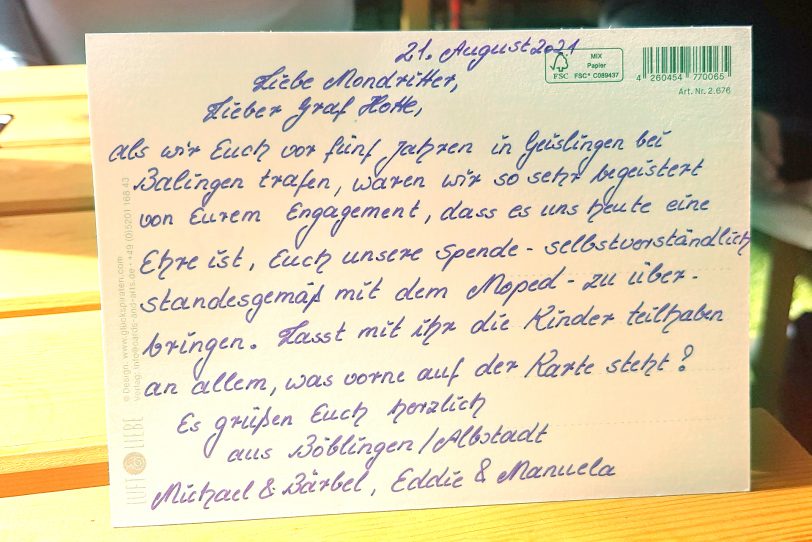 21. August 2021
MIX
Papier
FSC
FSC® C089437
4 260454 770065
Art. Nr. 2.676
Liebe Mondritter,
Lieber Graf Hotte,
als wir Euch vor fünf Jahren in Geislingen bei
Balingen trafen, waren wir so sehr begeistert
von Eurem Engagement, dass es uns heute eine
Ehre ist, Euch unsere Spende - selbstverständlich
standesgemäß mit dem Moped - zu über-
bringen. Lasst mit ihr die Kinder teilhaben
an allem, was vorne auf der Karte steht!
Es grüßen Euch herzlich
aus Böblingen/Albstadt
Michael & Bärbel, Eddie & Manuela
© Design: www.glückspiraten.com
Verlag: info@cards-and-arts.de · +49 (0)5201 166 43
LUFT LIEBE